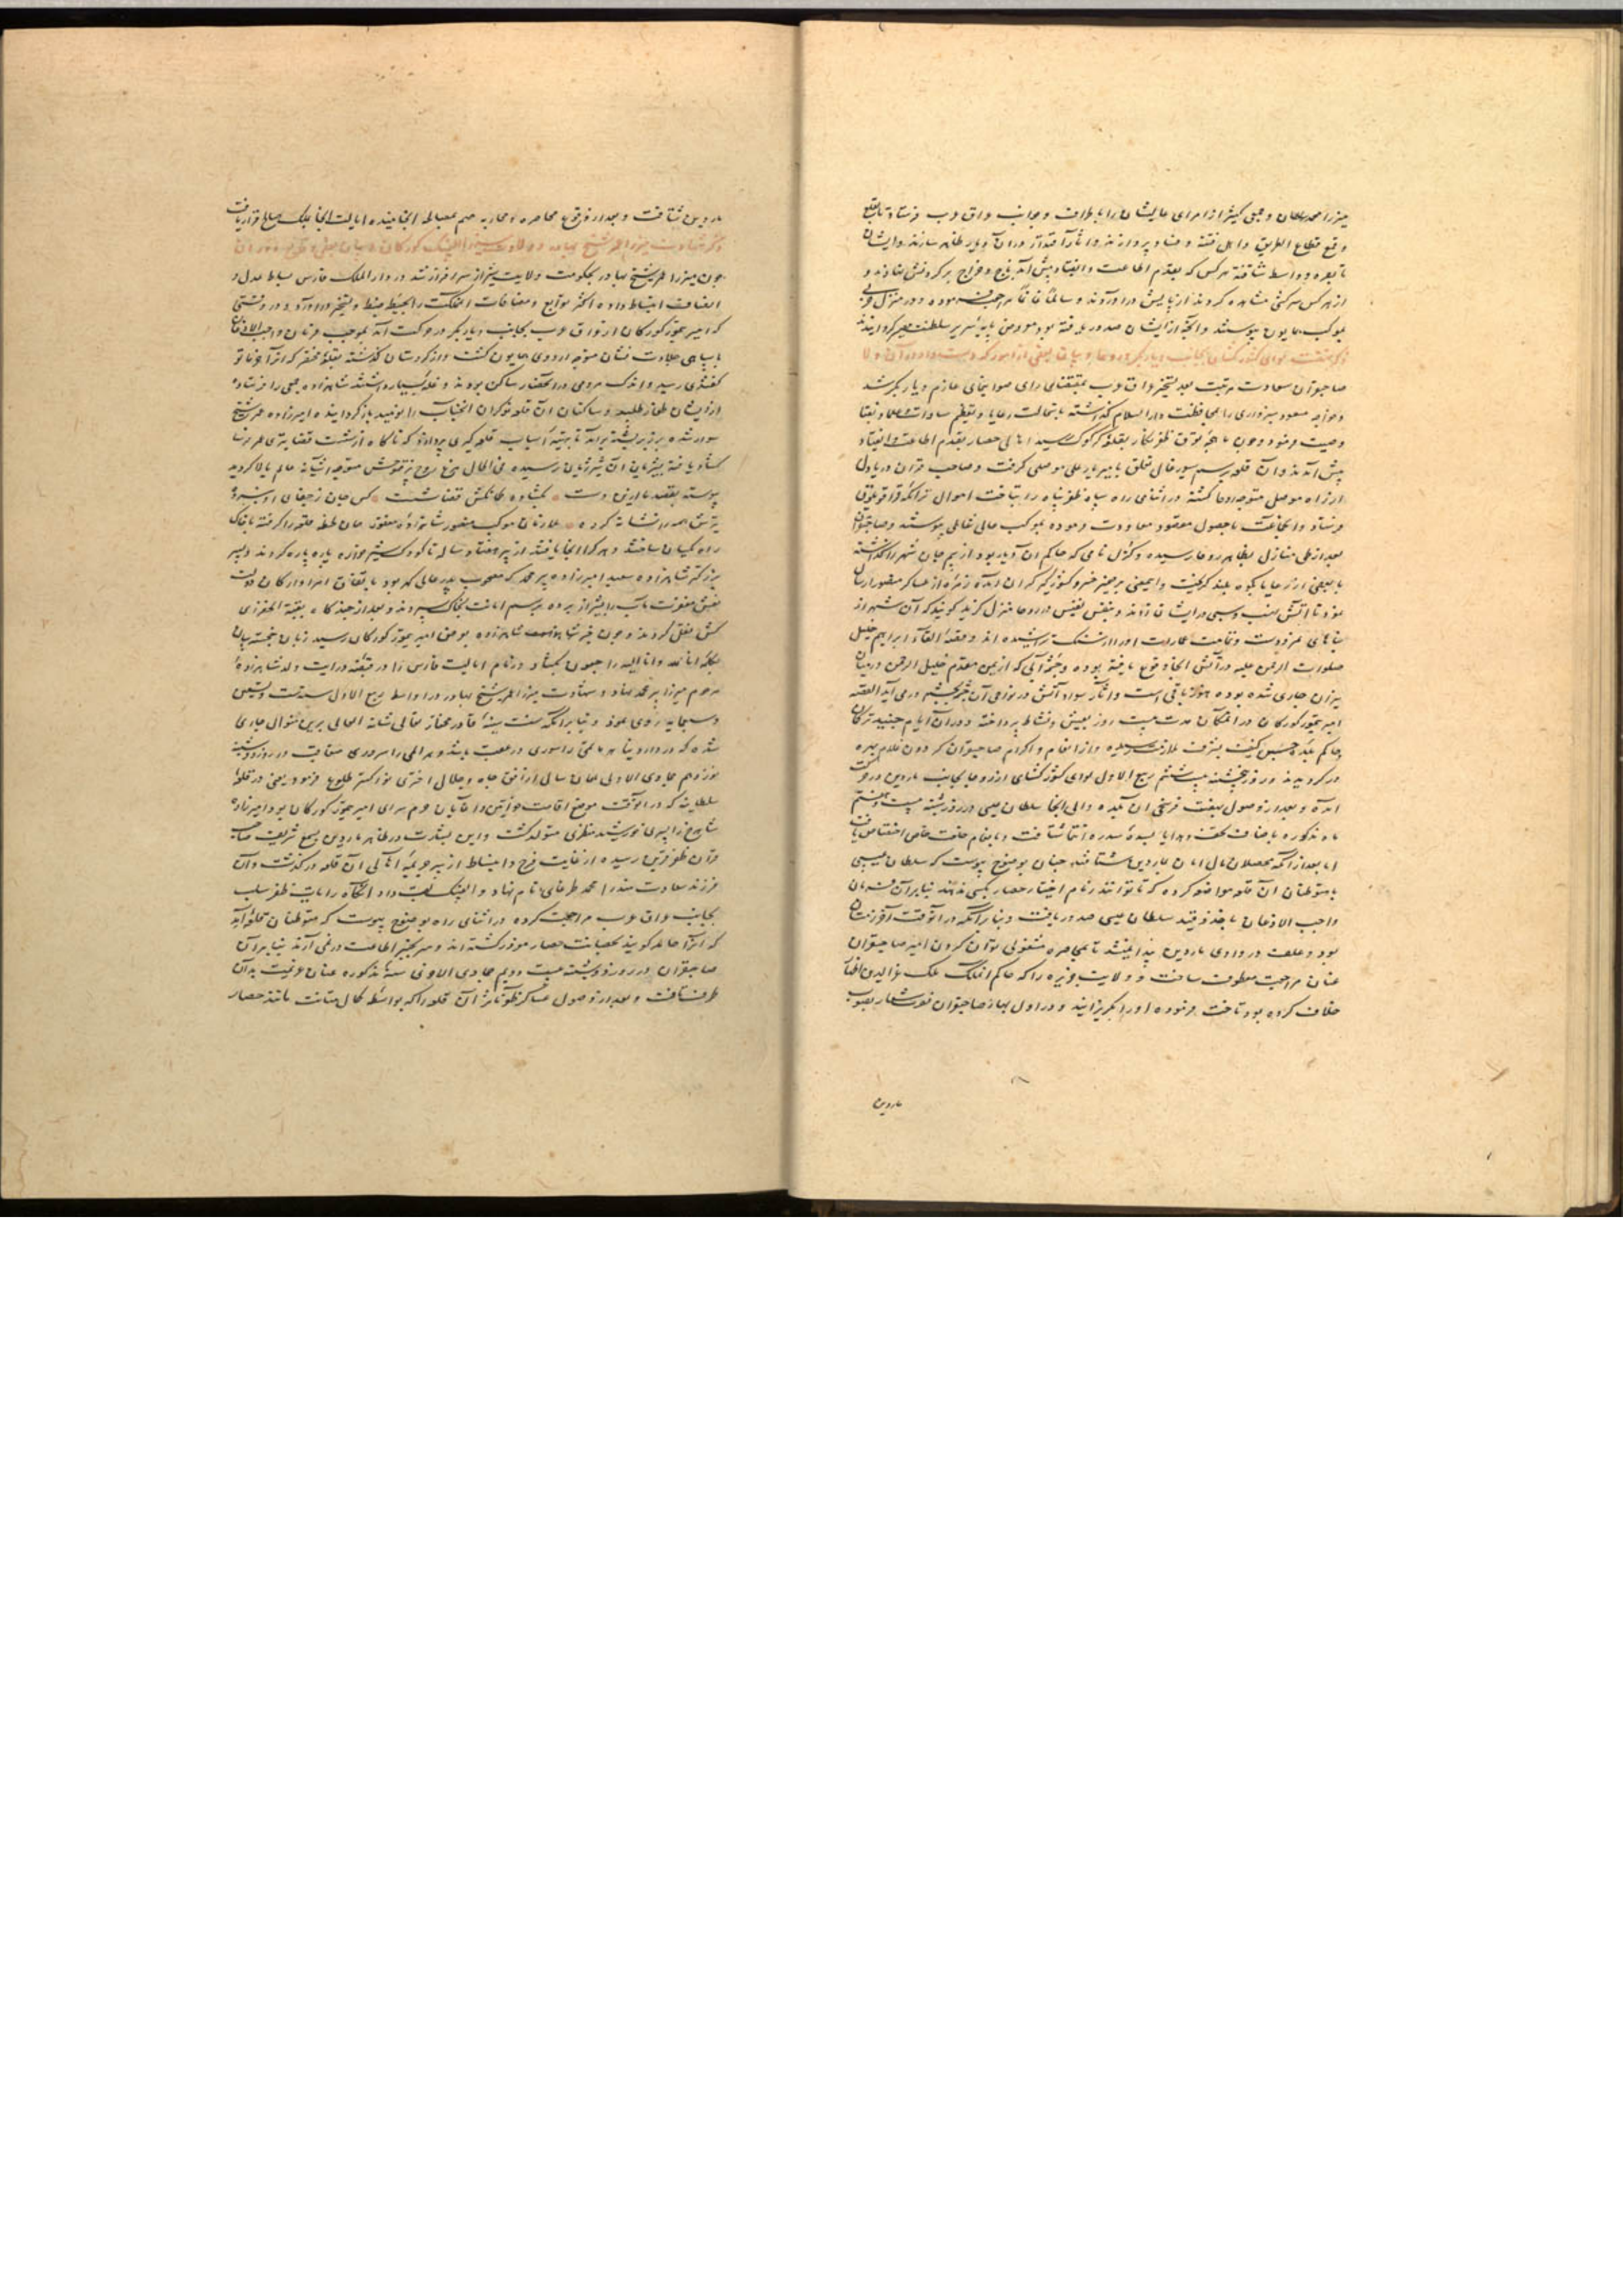 میرزا محمد سلطان و جمعی کثیر از امرای عالیشان را باطراف و جوانب عراق عرب فرستاد تا بقلع
و قمع قطاع الطریق و اهل فتنه و فساد پردازند و آثار اقتدار در آن دیار ظاهر سازند و ایشان
تا بصره و واسط شتافته هر کس که بقدم اطاعت و انقیاد پیش آمد باج و خراج بر گردنش نهادند و
از هر کس سرکشی مشاهده کردند از پایش درآوردند و سالماً غانماً مراجعت نموده در منزل حربی
بموکب همایون پیوستند و آنچه از ایشان صدور یافته بود معروض پایه سریر سلطنت مصیر گردانیدند
ذکر نهضت لوای کشورگشای بجانب دیار بکر و روحا و بیان بعضی از امور که دست داد در آن
صاحبقران سعادت مرتبت بعد تسخیر عراق عرب بمقتضای رای صوابنمای عازم دیار بکر شد
و خواجه مسعود سبزواری را بمحافظت دارالسلام گذاشته باستمالت رعایا و تعظیم سادات و علما و نقبا
وصیت فرمود و چون ماهچه توق ظفرنگار بقلعه کرکوک رسید اهالی حصار بقدم اطاعت و انقیاد
پیش آمدند و آن قلعه برسم سیورغال تعلق بامیر یار علی موصلی گرفت و صاحب قران دریادل
از راه موصل متوجه روحا گشته در اثنای راه سپاه ظفر پناه را بتاخت احوال تراکمه قراقویونلو
فرستاد و آن جماعت با حصول مقصود معاودت نموده بموکب عالی پیوستند و صاحبقران
بعد از طی منازل بظاهر روحا رسیده و کزل نامی که حاکم آن دیار بود از بیم جان شهر را گذاشته
با بعضی از رعایا بکوه بلند گریخت و
نمود تا آتش نهب و سبی در ایشان زدند و بنفس نفیس در روحا منزل گزید گویند که آن شهر از
بناهای نمرودست و تمامت عمارات او را از سنگ تراشیده اند و قصه القای ابراهیم خلیل
صلوات الرحمن علیه در آتش آنجا وقوع یافته بوده و چشمه آبی که از یمن مقدم خلیل الرحمن در میان
نیران جاری شده بوده هنوز باقی است و آثار سواد آتش در نواحی آن چشمه بچشم درمی آید القصه
امیر تیمور کورکان در آن مکان مدت بیست روز بعیش و نشاط پرداخته و در آن ایام جنید ترکمان
حاکم بلده حسن کیف بشرف ملازمت رسیده و از انعام و اکرام صاحبقران گردون غلام بهره
ور گردیدند و روز پنجشنبه بیست و ششم ربیع الاول لوای کشورگشای از روحا بجانب ماردین در حرکت
آمده و بعد از وصول بهفت فرسخی آن بلده والی آنجا سلطان عیسی در روز شنبه بیست و هشتم
ماه مذکوره با صناف تحف و هدایا بسده سدره انتما شتافت و بانعام خلعت خاص اختصاص یافت
اما بعد از آنکه محصلان مال امان بماردین شتافتند چنان بوضوح پیوست که سلطان عیسی
با متوطنان آن قلعه مواضعه کرده که تا توانند زمام اختیار حصار بکسی ندهند بنابر آن فرمان
واجب الاذعان باخذ و قید سلطان عیسی صدور یافت و بنابر آنکه در آن وقت آخر زمستان
بود و علف در وادی ماردین پیدا نمیشد تا بمحاصره مشغولی توان کردن امیر صاحبقران
عنان مراجعت معطوف ساخت و ولایت جزیره را که حاکم آن ملک ملک عزالدین
خلاف کرده بود تاخت فرموده او را بگریزانید و در اول بهار صاحبقران نصرت شعار بصوب
ماردین
ماردین شتافت و بعد از وقوع محاصره و محاربه مهم بمصالحه انجامیده ایالت آنجا بملک صالح قرار یافت
ذکر شهادت میرزا عمر شیخ بهادر و ولادت میرزا الغ بیک کورکان و بیان بعضی
چون میرزا عمر شیخ بهادر بحکومت ولایت شیراز سرافراز شد در دارالملک فارس بساط عدل و
انصاف انبساط داده اکثر توابع و مضافات آن مملکت را بحیطه ضبط و تسخیر درآورد و در وقتی
که امیر تیمور کورکان از عراق عرب بجانب دیار بکر در حرکت آمد بموجب فرمان واجب الاذعان
با سپاهی جلادت نشان متوجه اردوی همایون گشت و از کردستان گذشته بقلعه محقر که آنرا خرماتو
گفتندی رسید و اندک مردمی در آن حصار ساکن بودند و غله بسیار داشتند شاهزاده جمعی را فرستاده
از ایشان طعام طلبید و ساکنان آن قلعه نوکران آنجناب را نومید بازگردانیدند امیرزاده عمر شیخ
سوار شده بر زبر پشته برآمد تا بتهیه اسباب قلعه گیری پردازد که ناگاه از شست قضا تیری
گشاد یافته بشریان آن شیر ژیان رسیده فی الحال مرغ روح پر فتوحش متوجه آشیانه عالم بالا گردید
پیوسته بقصد ما درین دست کشاده کمانکش قضا شست کس جان ز جفای او نبرده
تیرش همه را نشانه کرده ملازمان موکب منصور شاهزاده مغفور همان لحظه قلعه را گرفته با خاک
راه یکسان ساختند و هر که را آنجا یافتند از پیر هفتاد ساله تا کودک شیر خواره پاره پاره کردند و پسر
بزرگتر شاهزاده سعید امیرزاده پیر محمد که مصحوب پدر عالی گهر بود باتفاق امرا و ارکان دولت
نعش مغفرت مآب را بشیراز برده برسم امانت بخاک سپردند و بعد از چندگاه ببقیة الخضرای
کش نقل کردند و چون خبر شهادت شاهزاده بعرض امیر تیمور کورکان رسید زبان خجسته بیان
بکلمه انا لله و انا الیه راجعون بگشاد و زمام ایالت فارس را در قبضه درایت ولد شاهزاده
مرحوم میرزا پیر محمد نهاد و شهادت میرزا عمر شیخ بهادر در اواسط ربیع الاول سنه ست و تسعین
و سبعمایه روی نمود و بنا برآنکه سنت سنیه قادر مختار تعالی شانه العالی برین منوال جاری
شده که در دار دنیا هر ماتمی را سوری در عقب باشد و هر المی را سروری متعاقب در روز یکشنبه
نوزدهم جمادی الاولی همان سال از افق جاه و جلال اختری نور گستر طلوع فرمود یعنی در قلعه
سلطانیه که در آنوقت موضع اقامت خواتین و آقایان حرم سرای امیر تیمور کورکان بود امیرزاده
شاهرخ را پسری خورشید منظری متولد گشت و این بشارت در ظاهر ماردین بسمع شریف صاحب
قران ظفر قرین رسیده از غایت فرح و انبساط از سر جریمه اهالی آن قلعه درگذشت و آن
فرزند سعادتمند را محمد طرغای نام نهاد و الغ بیک لقب داد آنگاه رایات ظفر سلب
بجانب عراق عرب مراجعت کرده در اثنای راه بوضوح پیوست که متوطنان قلعه آمد
که آنرا حامد گویند بحصانت حصار مغرور گشته اند و سر بچنبر اطاعت درنمی آرند بنابر آن
صاحبقران در روز دوشنبه بیست و دویم جمادی الاولی سنه مذکوره عنان عزیمت بدان
طرف تافت و بعد از وصول عساکر ظفر مآثر آن قلعه را که بواسطه کمال متانت مانند حصار